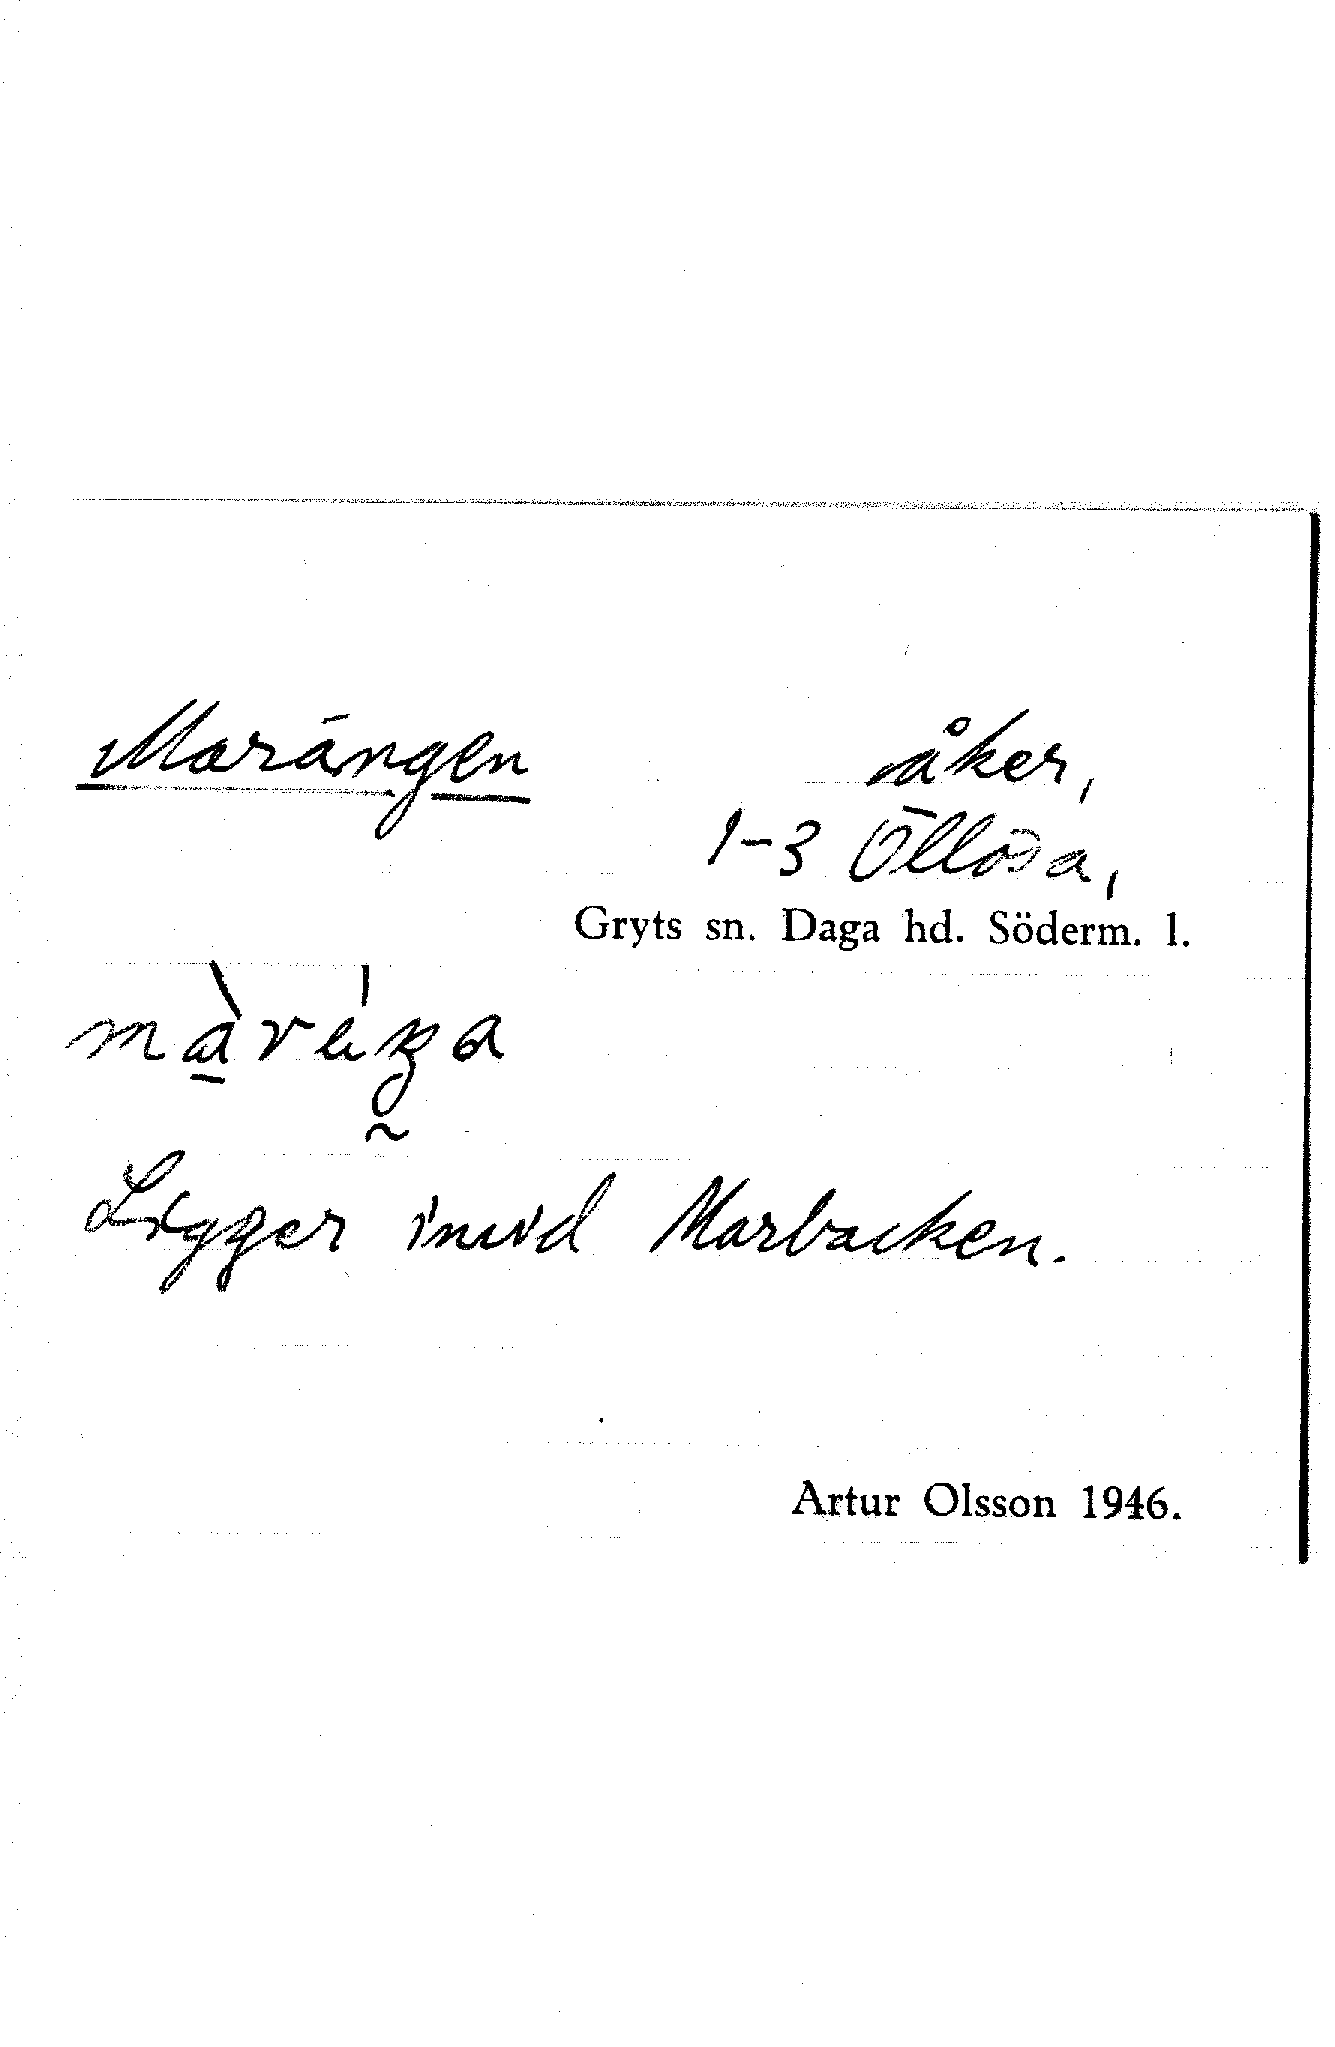 Marängen åker,
1-3 Öllösa,
Gryts sn. Daga hd. Söderm. l.
Ligger invid Marbacken.
Artur Olsson 1946.